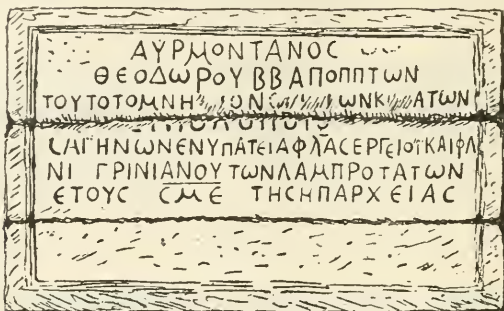 ΑΥΡΜΟΝΤΑΝΟC
ΘΕΟΔѠΡΟΥ ΒΒ ΑΠΟΠΠΤѠΝ
ΤΟΥΤΟΤΟΜΝΗ
CΛΗΓΗΝѠΝΕΝΥΠΑΤΕΙΑΦΛΑCΕΡΓΕΙΟΥΚΑΙΦΛ
ΝΙ ΓΡΙΝΙΑΝΟΥ ΤѠΝΛΑΜΠΡΟΤΑΤѠΝ
ΕΤΟΥC CΜΕ ΤΗCΗΠΑΡΧΕΙΑC